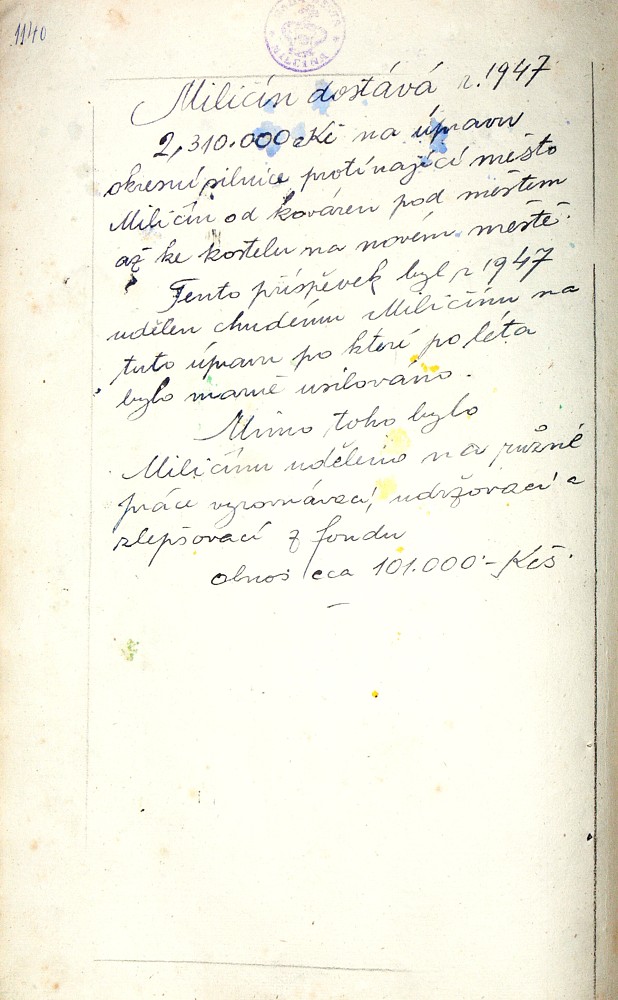 1140
MILČÍNA
Miličín dostává r. 1947
2,310.000 Kč na úpravu
okresní silnice protínající město
Miličín od kováren pod městem
až ke kostelu na novém městě.
Tento příspěvek byl r 1947
udělen chudému Miličínu na
tuto úpravu po které po léta
bylo marně usilováno.
Mimo toho bylo
Miličínu uděleno na různé
práce vyrovnávací, udržovací a
zlepšovací z fondu
obnos cca 101.000 - Kčs.